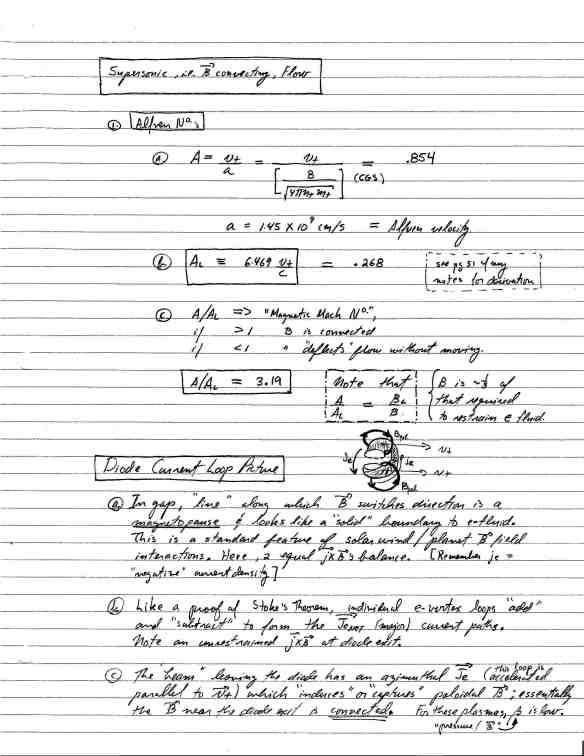 Supersonic, i.e. B convecting, Flow
1. Alfven No.,
a A = v+ / a = v+ / [ B / √4πn+m+ ] (CGS) = .854
a = 1.45 × 10⁹ cm/s = Alfven velocity
b A_L ≡ 6.469 v+/c = .268
see pg 51 of my
notes for derivation
c A/A_L => "Magnetic Mach No.",
if > 1 B is convected
if < 1 " "deflects" flow without moving.
A/A_L = 3.19
Note that
A/A_L = B_L/B
B is ~⅓ of
that required
to restrain e fluid.
Diode Current Loop Picture
B_pol
v+
J_e
J_e
v+
B_pol
a In gap, "line" along which B switches direction is a
magnetopause & looks like a "solid" boundary to e-fluid.
This is a standard feature of solar wind / planet B field
interactions. Here, 2 equal j×B's balance. [Remember j_e =
"negative" current density]
b Like a proof of Stoke's Theorem, individual e-vortex loops "add"
and "subtract" to form the J (major) current paths.
Note an unrestrained j×B at diode exit.
c The "beam" leaving the diode has an azimuthal J_e (this loop is
accelerated
parallel to v+) which "induces" or "captures" poloidal B; essentially
the B near the diode exit is convected. For these plasmas, β is low.
"pressure / B²"